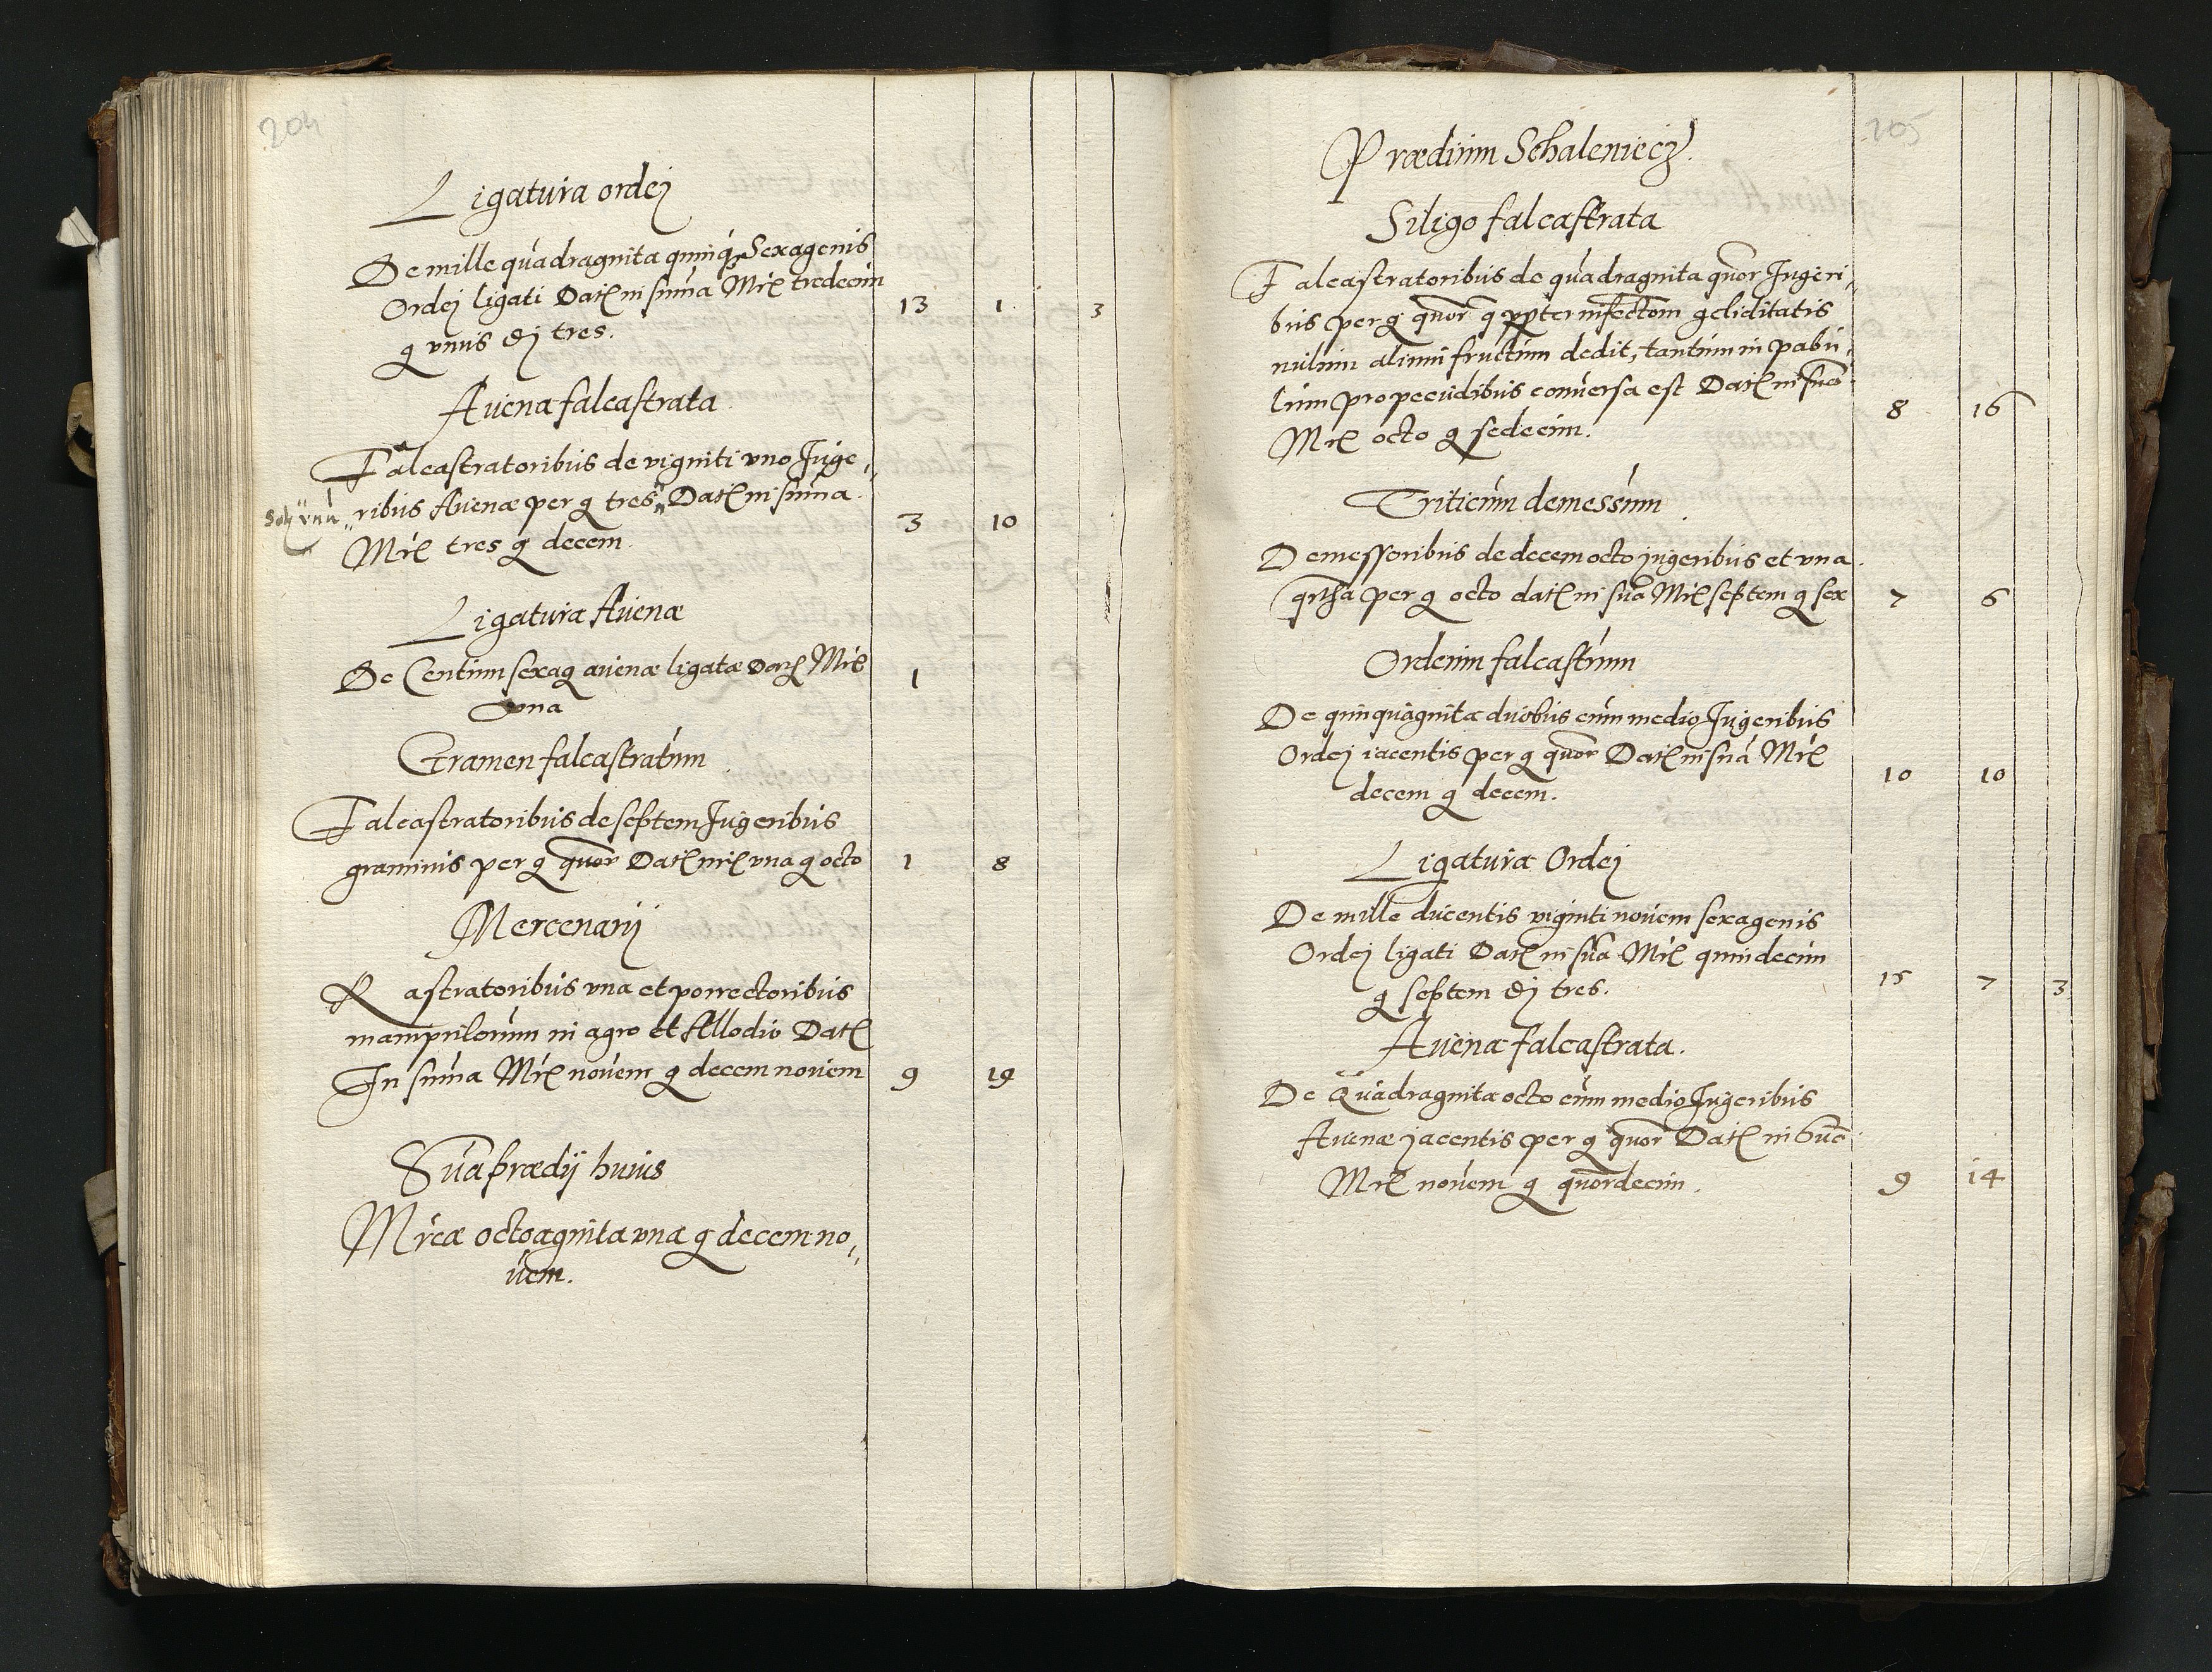 204
Ligatura ordej
De mille quadraginta quinq Sexagenis
Ordej ligati Dat in suma Mr tredecim 13 1 3
g unus dj tres.
Auena falcastrata
Falcastratoribus de viginti uno Juge„
ribus Auenæ per g tres„ Dat in suma 3 10
Mr tres g decem
Ligatura Auenæ
De Centum sexag auenæ ligatæ Dat Mr 1
una
Gramen falcastratum
Falcastratoribus de septem Jugeribus
graminis per g quor Dat mr una g octo 1 8
Mercenarij
Rastratoribus una et porrectoribus
manipulorum in agro et Allodio Dat
In suma Mr nouem g decem nouem 9 19
Sua prædij huius
Mrcæ octoaginta una g decem no„
uem.
205
Prædium Schaleniecz.
Siligo falcastrata
Falcastratoribus de quadraginta quor Jugeri„
bus per g quor q ppter infectom geliditatis
nulum alium fructum dedit, tantum in pabu„
lum pro pecudibus conuersa est Dat in sua 8 16
Mr octo g sedecim.
Triticum demessum
Demessoribus de decem octo jugeribus et una
qrtha per g octo dat in sua Mr septem g sex 7 6
Ordeum falcastum
De quinquaginta duobus cum medio Jugeribus
Ordej iacentis per g quor Dat in sua Mr 10 10
decem g decem.
Ligatura Ordej
De mille ducentis viginti nouem sexagenis
Ordej ligati Dat in sua Mr quindecim 15 7 3
g septem dj tres.
Auena falcastrata.
De Quadraginta octo cum medio Jugeribus
Auenæ jacentis per g quor Dat in sua
Mr nouem g quordecim. 9 14